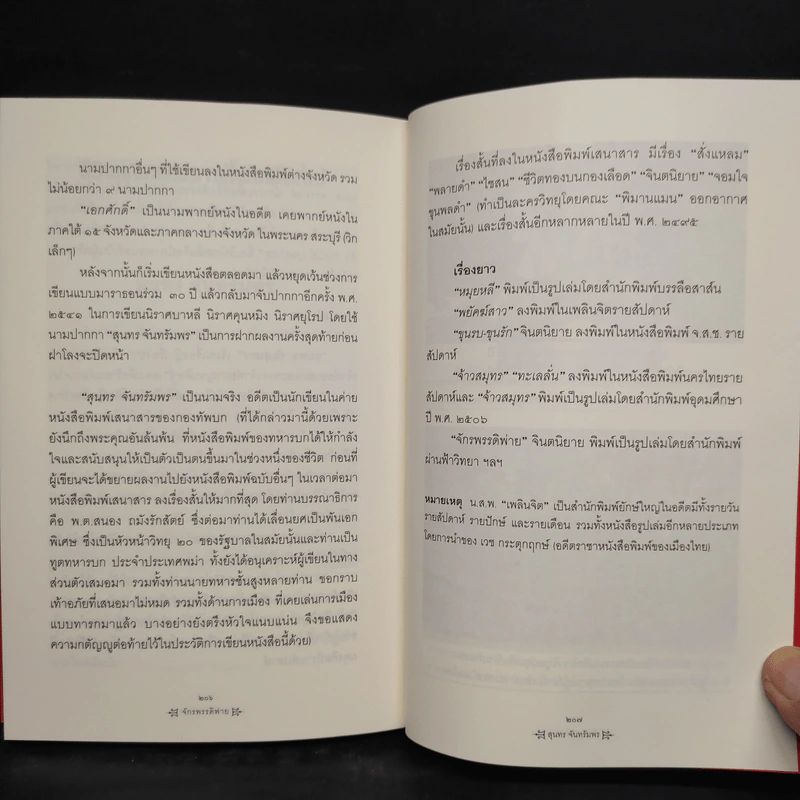 นามปากกาอื่นๆ ที่ใช้เขียนลงในหนังสือพิมพ์ต่างจังหวัด รวม
ไม่น้อยกว่า ๙ นามปากกา
"เอกศักดิ์" เป็นนามพากย์หนังในอดีต เคยพากย์หนังใน
ภาคใต้ ๑๕ จังหวัดและภาคกลางบางจังหวัด ในพระนคร สระบุรี (วิก
เล็กๆ)
หลังจากนั้นก็เริ่มเขียนหนังสือตลอดมา แล้วหยุดเว้นช่วงการ
เขียนแบบมาราธอนร่วม ๓๐ ปี แล้วกลับมาจับปากกาอีกครั้ง พ.ศ.
๒๕๔๑ ในการเขียนนิราศบาหลี นิราศคุนหมิง นิราศยุโรป โดยใช้
นามปากกา "สุนทร จันทรัมพร" เป็นการฝากผลงานครั้งสุดท้ายก่อน
ฝาโลงจะปิดหน้า
"สุนทร จันทรัมพร" เป็นนามจริง อดีตเป็นนักเขียนในค่าย
หนังสือพิมพ์เสนาสารของกองทัพบก (ที่ได้กล่าวมานี้ด้วยเพราะ
ยังนึกถึงพระคุณอันล้นพ้น ที่หนังสือพิมพ์ของทหารบกได้ให้กำลัง
ใจและสนับสนุนให้เป็นตัวเป็นตนขึ้นมาในช่วงหนึ่งของชีวิต ก่อนที่
ผู้เขียนจะได้ขยายผลงานไปยังหนังสือพิมพ์ฉบับอื่นๆ ในเวลาต่อมา
หนังสือพิมพ์เสนาสาร ลงเรื่องสั้นให้มากที่สุด โดยท่านบรรณาธิการ
คือ พ.ต.สนอง ถมังรักสัตย์ ซึ่งต่อมาท่านได้เลื่อนยศเป็นพันเอก
พิเศษ ซึ่งเป็นหัวหน้าวิทยุ ๒๐ ของรัฐบาลในสมัยนั้นและท่านเป็น
ทูตทหารบก ประจำประเทศพม่า ทั้งยังได้อนุเคราะห์ผู้เขียนในทาง
ส่วนตัวเสมอมา รวมทั้งท่านนายทหารชั้นสูงหลายท่าน ขอกราบ
เท้าอภัยที่เสนอมาไม่หมด รวมทั้งด้านการเมือง ที่เคยเล่นการเมือง
แบบทารกมาแล้ว บางอย่างยังตรึงหัวใจแนบแน่น จึงขอแสดง
ความกตัญญูต่อท้ายไว้ในประวัติการเขียนหนังสือนี้ด้วย)
๒๐๖
จักรพรรดิพ่าย
เรื่องสั้นที่ลงในหนังสือพิมพ์เสนาสาร มีเรื่อง "สั่งแหลม"
"พลายดำ" "ไซสน" "ชีวิตทองบนกองเลือด" "จินตนิยาย" "จอมใจ
ขุนพลดำ" (ทำเป็นละครวิทยุโดยคณะ "พิมานแมน" ออกอากาศ
ในสมัยนั้น) และเรื่องสั้นอีกหลากหลายในปี พ.ศ. ๒๔๙๕
เรื่องยาว
"หมุยหลี" พิมพ์เป็นรูปเล่มโดยสำนักพิมพ์บรรลือสาส์น
"พยัคฆ์สาว" ลงพิมพ์ในเพลินจิตรายสัปดาห์
"ขุนรบ-ขุนรัก" จินตนิยาย ลงพิมพ์ในหนังสือพิมพ์ จ.ส.ช. ราย
สัปดาห์
"จ้าวสมุทร" "ทะเลลั่น" ลงพิมพ์ในหนังสือพิมพ์นครไทยราย
สัปดาห์และ "จ้าวสมุทร" พิมพ์เป็นรูปเล่มโดยสำนักพิมพ์อุดมศึกษา
ปี พ.ศ. ๒๕๐๖
"จักรพรรดิพ่าย" จินตนิยาย พิมพ์เป็นรูปเล่มโดยสำนักพิมพ์
ผ่านฟ้าวิทยา ฯลฯ
หมายเหตุ น.ส.พ. "เพลินจิต" เป็นสำนักพิมพ์ยักษ์ใหญ่ในอดีตมีทั้งรายวัน
รายสัปดาห์ รายปักษ์ และรายเดือน รวมทั้งหนังสือรูปเล่มอีกหลายประเภท
โดยการนำของ เวช กระตุฤกษ์ (อดีตราชาหนังสือพิมพ์ของเมืองไทย)
๒๐๗
สุนทร จันทรัมพร